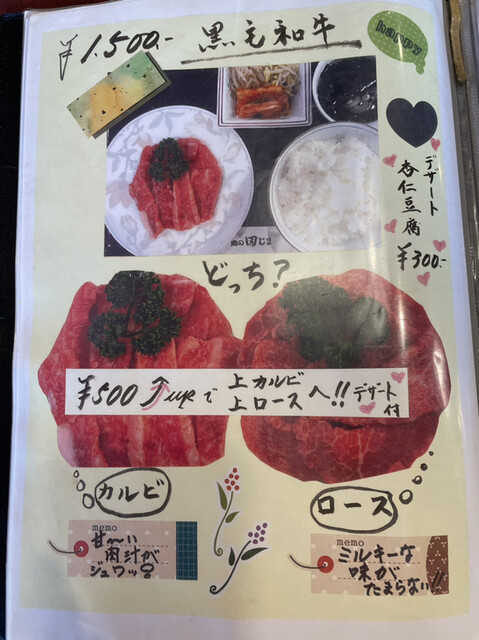 ¥1,500.-
黒毛和牛
happy
デザート
杏仁豆腐
¥300.-
肉の田じま
どっち?
¥500 ↑UPで
上カルビ
上ロース
へ!!
デザート
付
カルビ
ロース
memo
甘〜い
肉汁が
ジュワッ!!
memo
ミルキーな
味が
たまらない!!